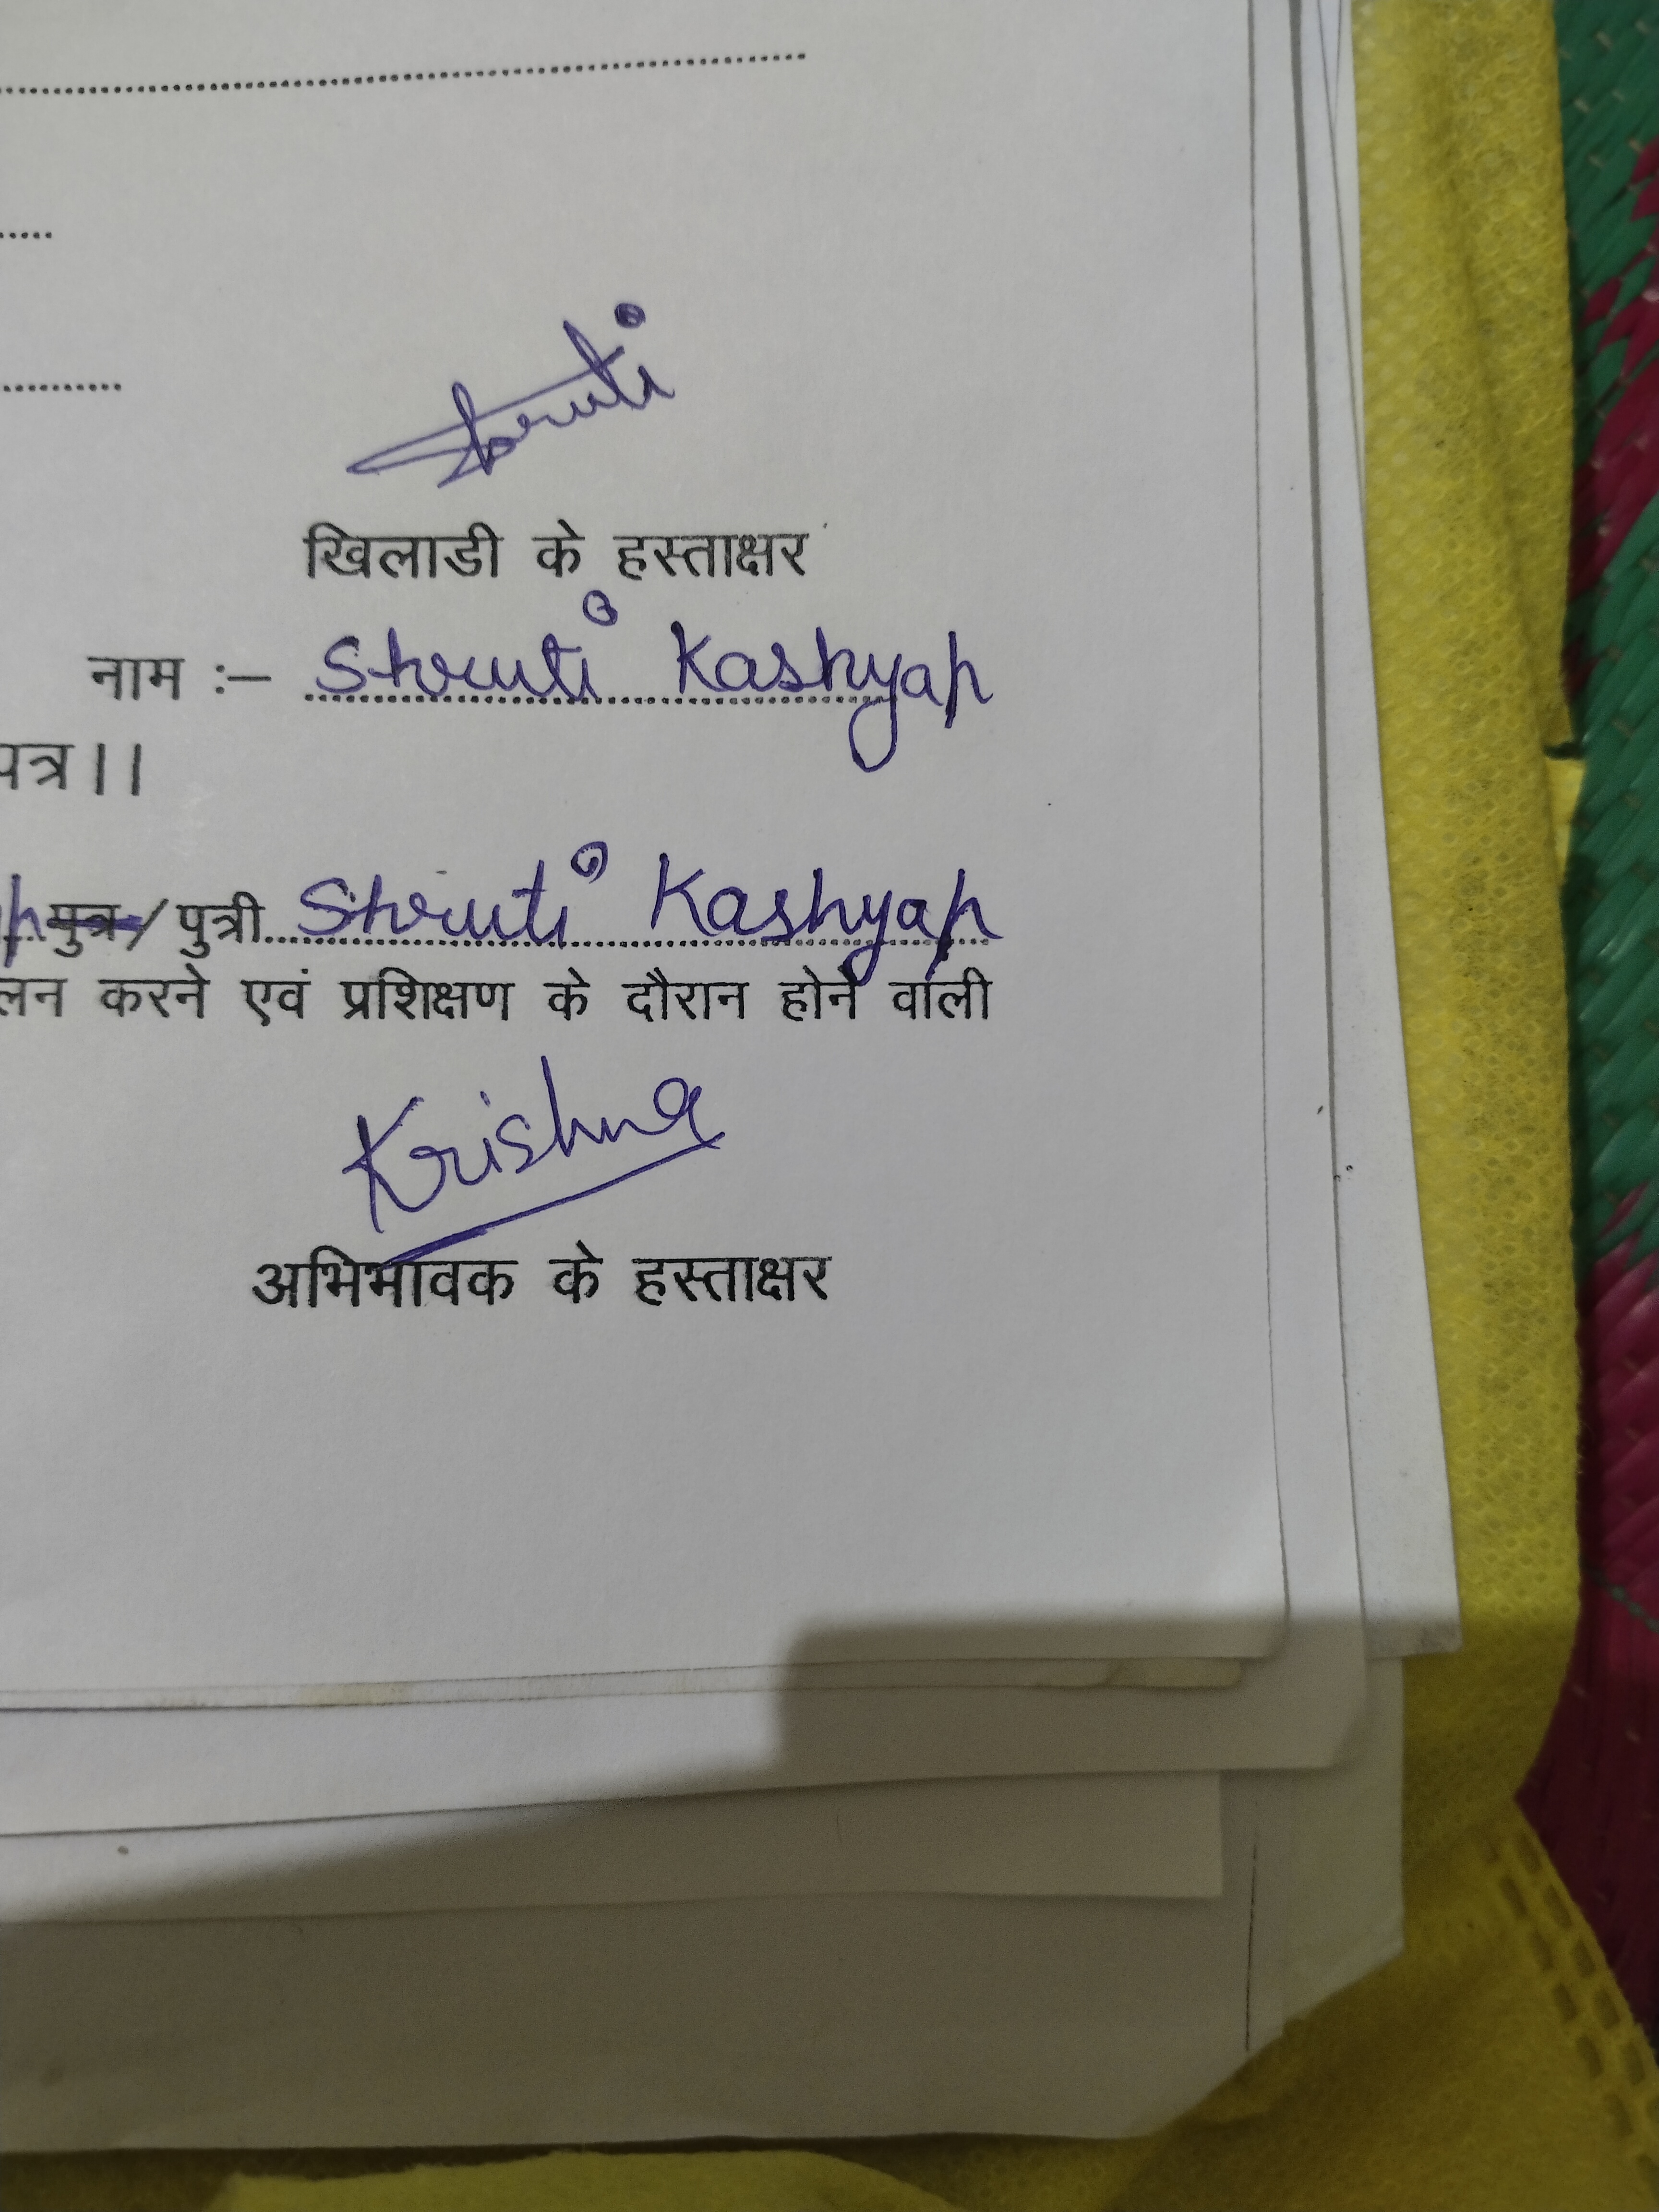 Shruti
खिलाडी के हस्ताक्षर
नाम :– Shruti Kashyap
पत्र।।
पुत्र / पुत्री Shruti Kashyap
करने एवं प्रशिक्षण के दौरान होने वाली
Krishna
अभिभावक के हस्ताक्षर